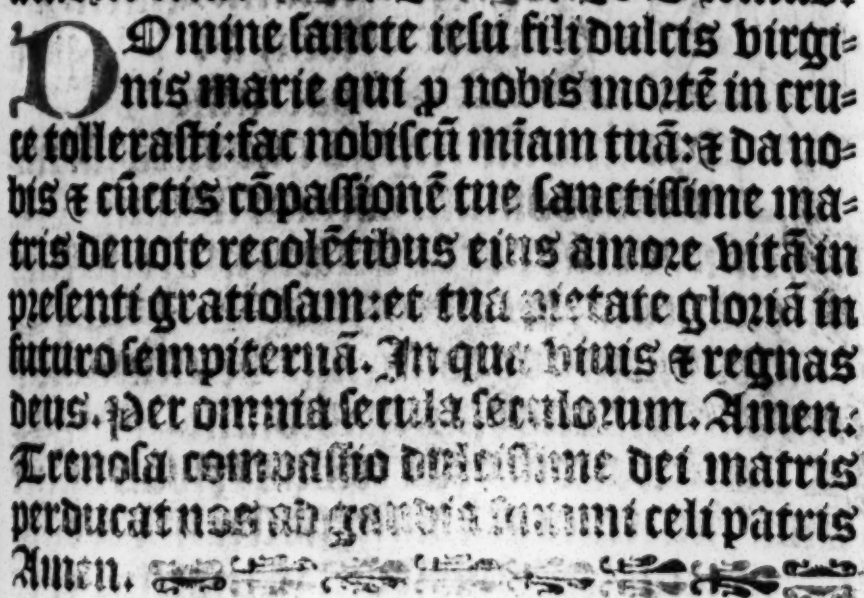 DOmine sancte iesu fili dulcis virgi=
nis marie qui ꝓ nobis mortē in cru=
ce tollerasti: fac nobiscū mīam tuā: ⁊ da no=
bis ⁊ cūctis cōpassionē tue sanctissime ma=
tris deuote recolētibus eius amore vitā in
presenti gratiosam: et tua pietate gloriā in
futuro sempiternā. In qua viuis ⁊ regnas
deus. Per omnia secula seculorum. Amen:
Trenosa compassio dulcissime dei matris
perducat nos ad gaudia summi celi patris
Amen.